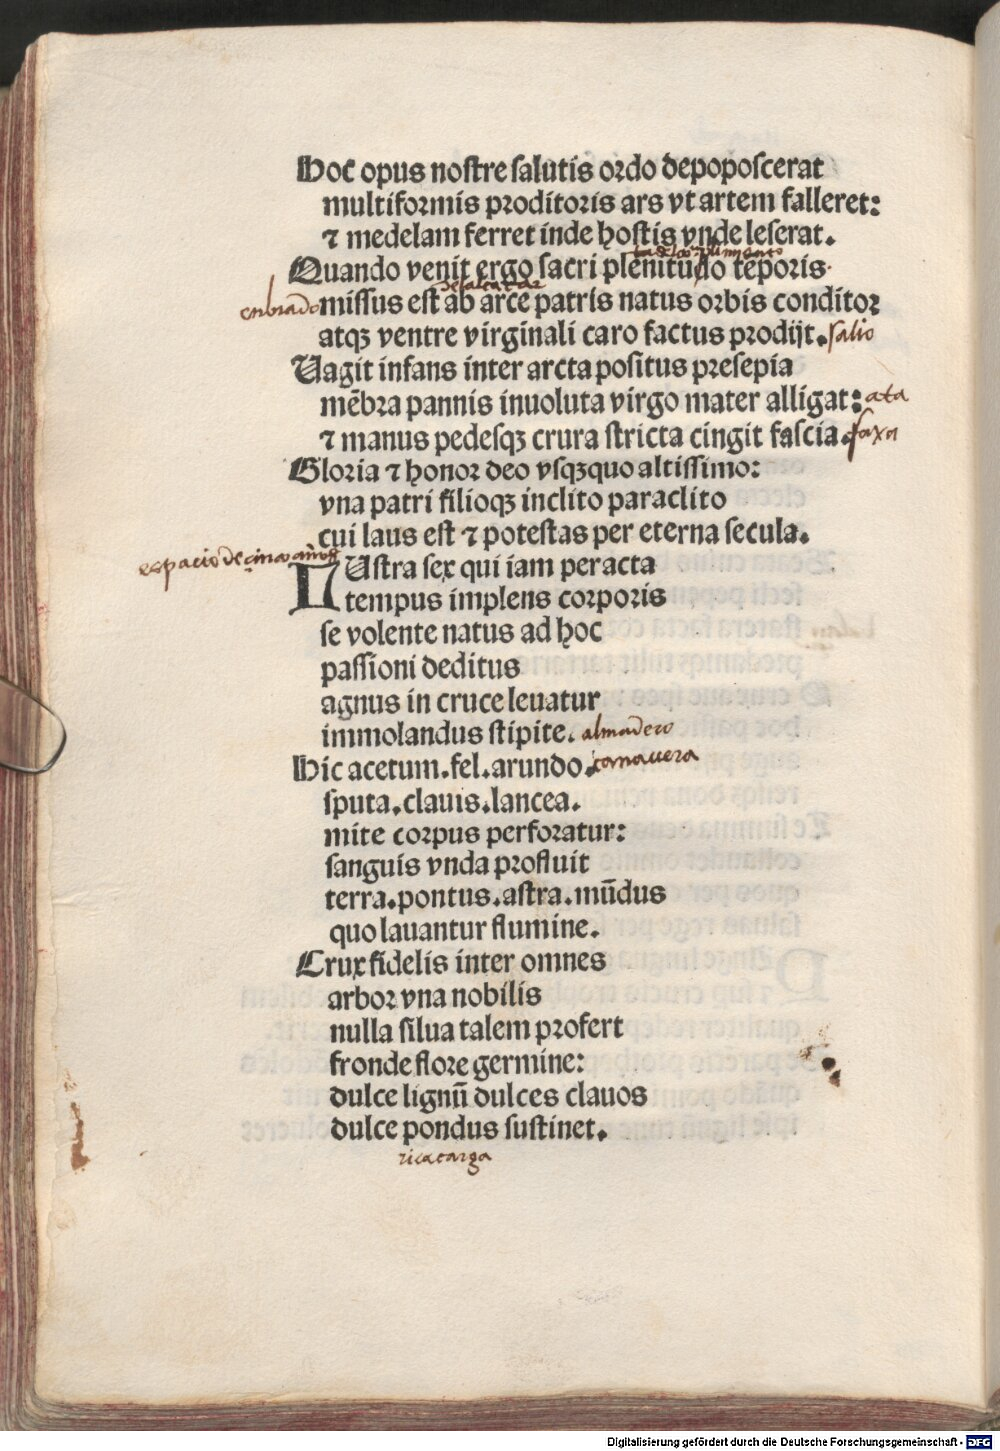 Hoc opus nostre salutis ordo depoposcerat
multiformis proditoris ars vt artem falleret:
⁊ medelam ferret inde hostis vnde leserat.
Quando venit ergo sacri plenitudo tēporis
enbiado missus est ab arce patris natus orbis conditor
atqꝫ ventre virginali caro factus prodijt. salio
Uagit infans inter arcta positus presepia
mēbra pannis inuoluta virgo mater alligat: ata
⁊ manus pedesqꝫ crura stricta cingit fascia. faxa
Gloria ⁊ honor deo vsqꝫquo altissimo:
vna patri filioqꝫ inclito paraclito
cui laus est ⁊ potestas per eterna secula.
espacio de cinco años
LUstra sex qui iam peracta
tempus implens corporis
se volente natus ad hoc
passioni deditus
agnus in cruce leuatur
immolandus stipite. almadero
Hic acetum. fel. arundo. cannauera
sputa. clauis. lancea.
mite corpus perforatur:
sanguis vnda profluit
terra. pontus. astra. mūdus
quo lauantur flumine.
Crux fidelis inter omnes
arbor vna nobilis
nulla silua talem profert
fronde flore germine:
dulce lignū dulces clauos
dulce pondus sustinet.
rica carga
Digitalisierung gefördert durch die Deutsche Forschungsgemeinschaft - DFG